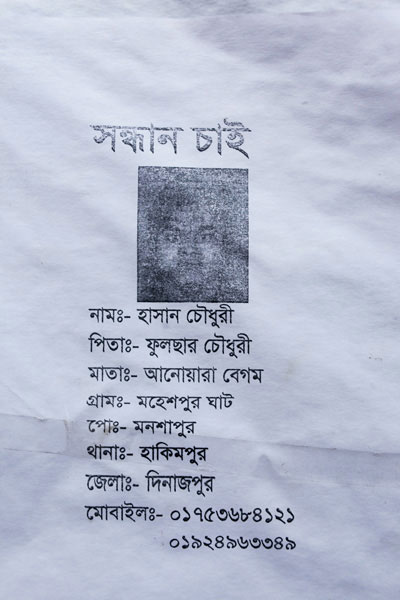 সন্ধান চাই
নামঃ- হাসান চৌধুরী
পিতাঃ- ফুলছার চৌধুরী
মাতাঃ- আনোয়ারা বেগম
গ্রামঃ- মহেশপুর ঘাট
পোঃ- মনশাপুর
থানাঃ- হাকিমপুর
জেলাঃ- দিনাজপুর
মোবাইলঃ- ০১৭৫৩৬৮৪১২১
০১৯২৪৯৬৩৩৪৯